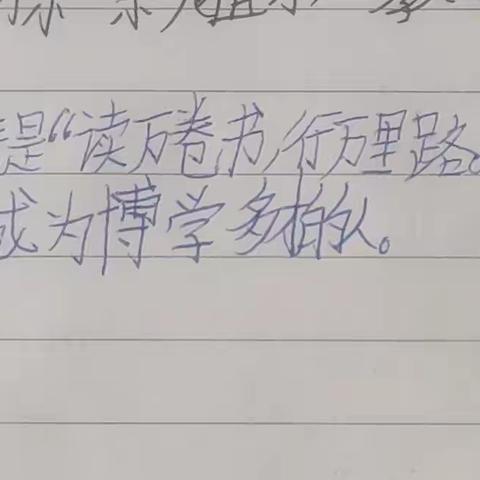 是“读万卷书,行万里路。
成为博学多才的人。